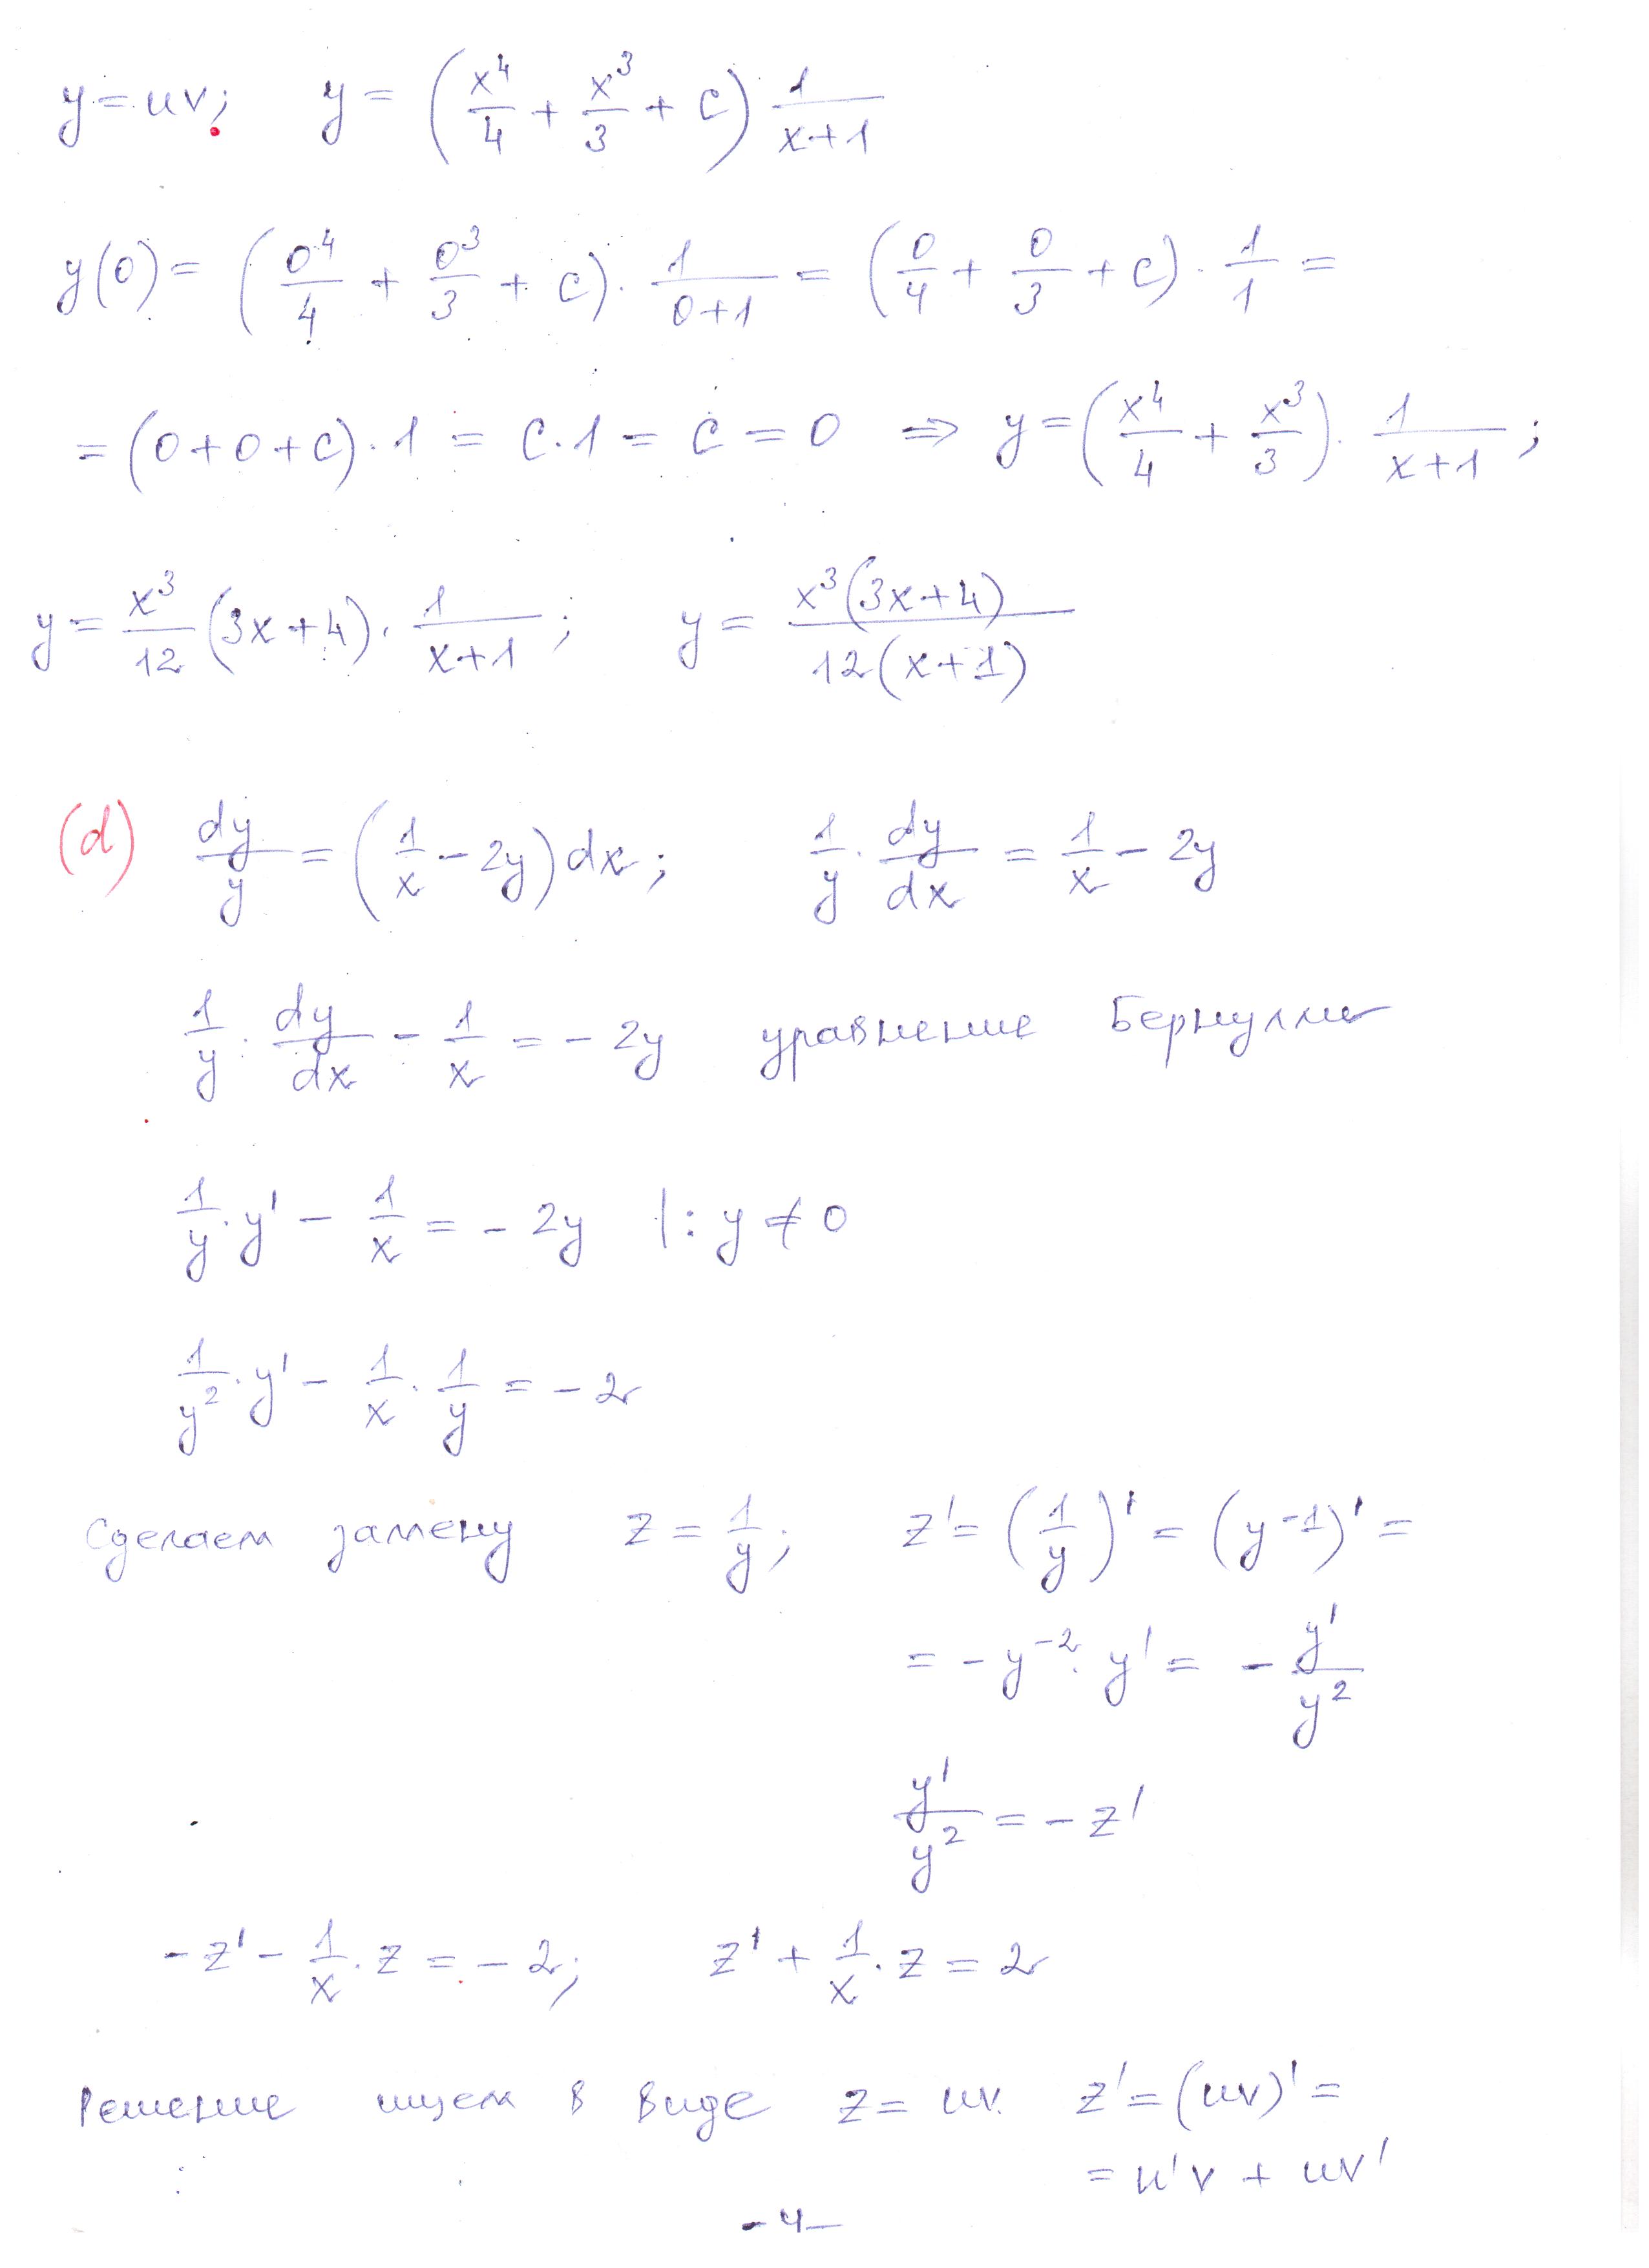 y = uv; y = (x⁴/4 + x³/3 + C) 1/(x+1)
y(0) = (0⁴/4 + 0³/3 + C) · 1/(0+1) = (0/4 + 0/3 + C) · 1/1 =
= (0+0+C) · 1 = C · 1 = C = 0 ⇒ y = (x⁴/4 + x³/3) · 1/(x+1);
y = x³/12 (3x+4) · 1/(x+1); y = x³(3x+4)/(12(x+1))
(d) dy/y = (1/x - 2y) dx; 1/y · dy/dx = 1/x - 2y
1/y · dy/dx - 1/x = -2y уравнение Бернулли
1/y · y' - 1/x = -2y |: y ≠ 0
1/y² · y' - 1/x · 1/y = -2
Сделаем замену z = 1/y; z' = (1/y)' = (y⁻¹)' =
= -y⁻² · y' = - y'/y²
y'/y² = -z'
-z' - 1/x · z = -2; z' + 1/x · z = 2
Решение ищем в виде z = uv. z' = (uv)' =
= u'v + uv'
-4-